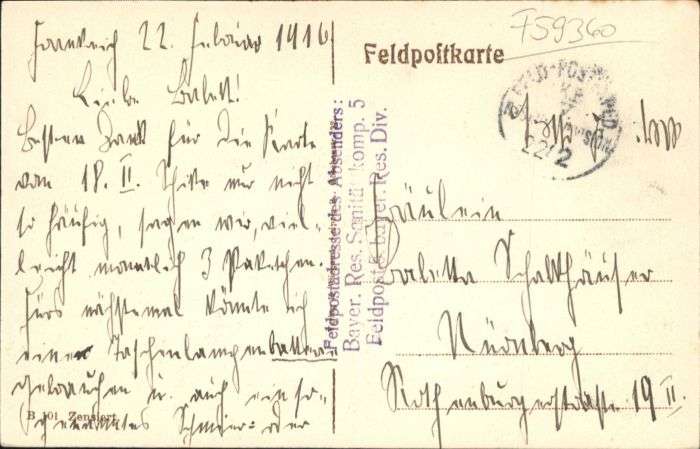 Frankreich 22. Februar 1916.
Liebe Babett!
Besten Dank für die Karte
vom 18. II. Schicke mir nicht
so häufig, sagen wir, viel-
leicht monatlich 3 Paketchen.
Fürs nächstemal könnte ich
einen Taschenlampenbatterie
gebrauchen u. auch ein so-
genanntes Schmier- oder
B 101 Zensiert
Feldpostkarte
F59360
22/2
Feldpostadresse des Absenders:
Bayer. Res. Sanitätskomp. 5
Feldpost 5. bayer. Res. Div.
Fräulein
Babetta Schalkhäuser
Nürnberg
Rothenburgerstraße 19 II.